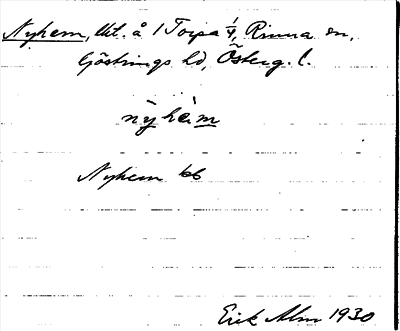 Nyhem, lht. å 1 Torpa 1/4, Rinna sn,
Göstrings hd, Österg. l.
nỳhèm
Nyhem kb
Erik Alm 1930